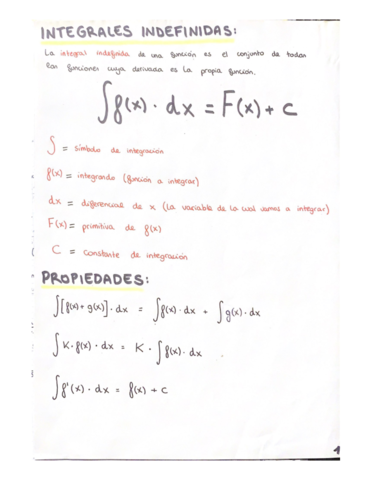 INTEGRALES INDEFINIDAS:
La integral indefinida de una función es el conjunto de todas
las funciones cuya derivada es la propia función.
∫f(x) · dx = F(x) + C
∫ = símbolo de integración
f(x) = integrando (función a integrar)
dx = diferencial de x (la variable de la cual vamos a integrar)
F(x) = primitiva de f(x)
C = constante de integración
PROPIEDADES:
∫[f(x) + g(x)] · dx = ∫f(x) · dx + ∫g(x) · dx
∫K · f(x) · dx = K · ∫f(x) · dx
∫f'(x) · dx = f(x) + C
1